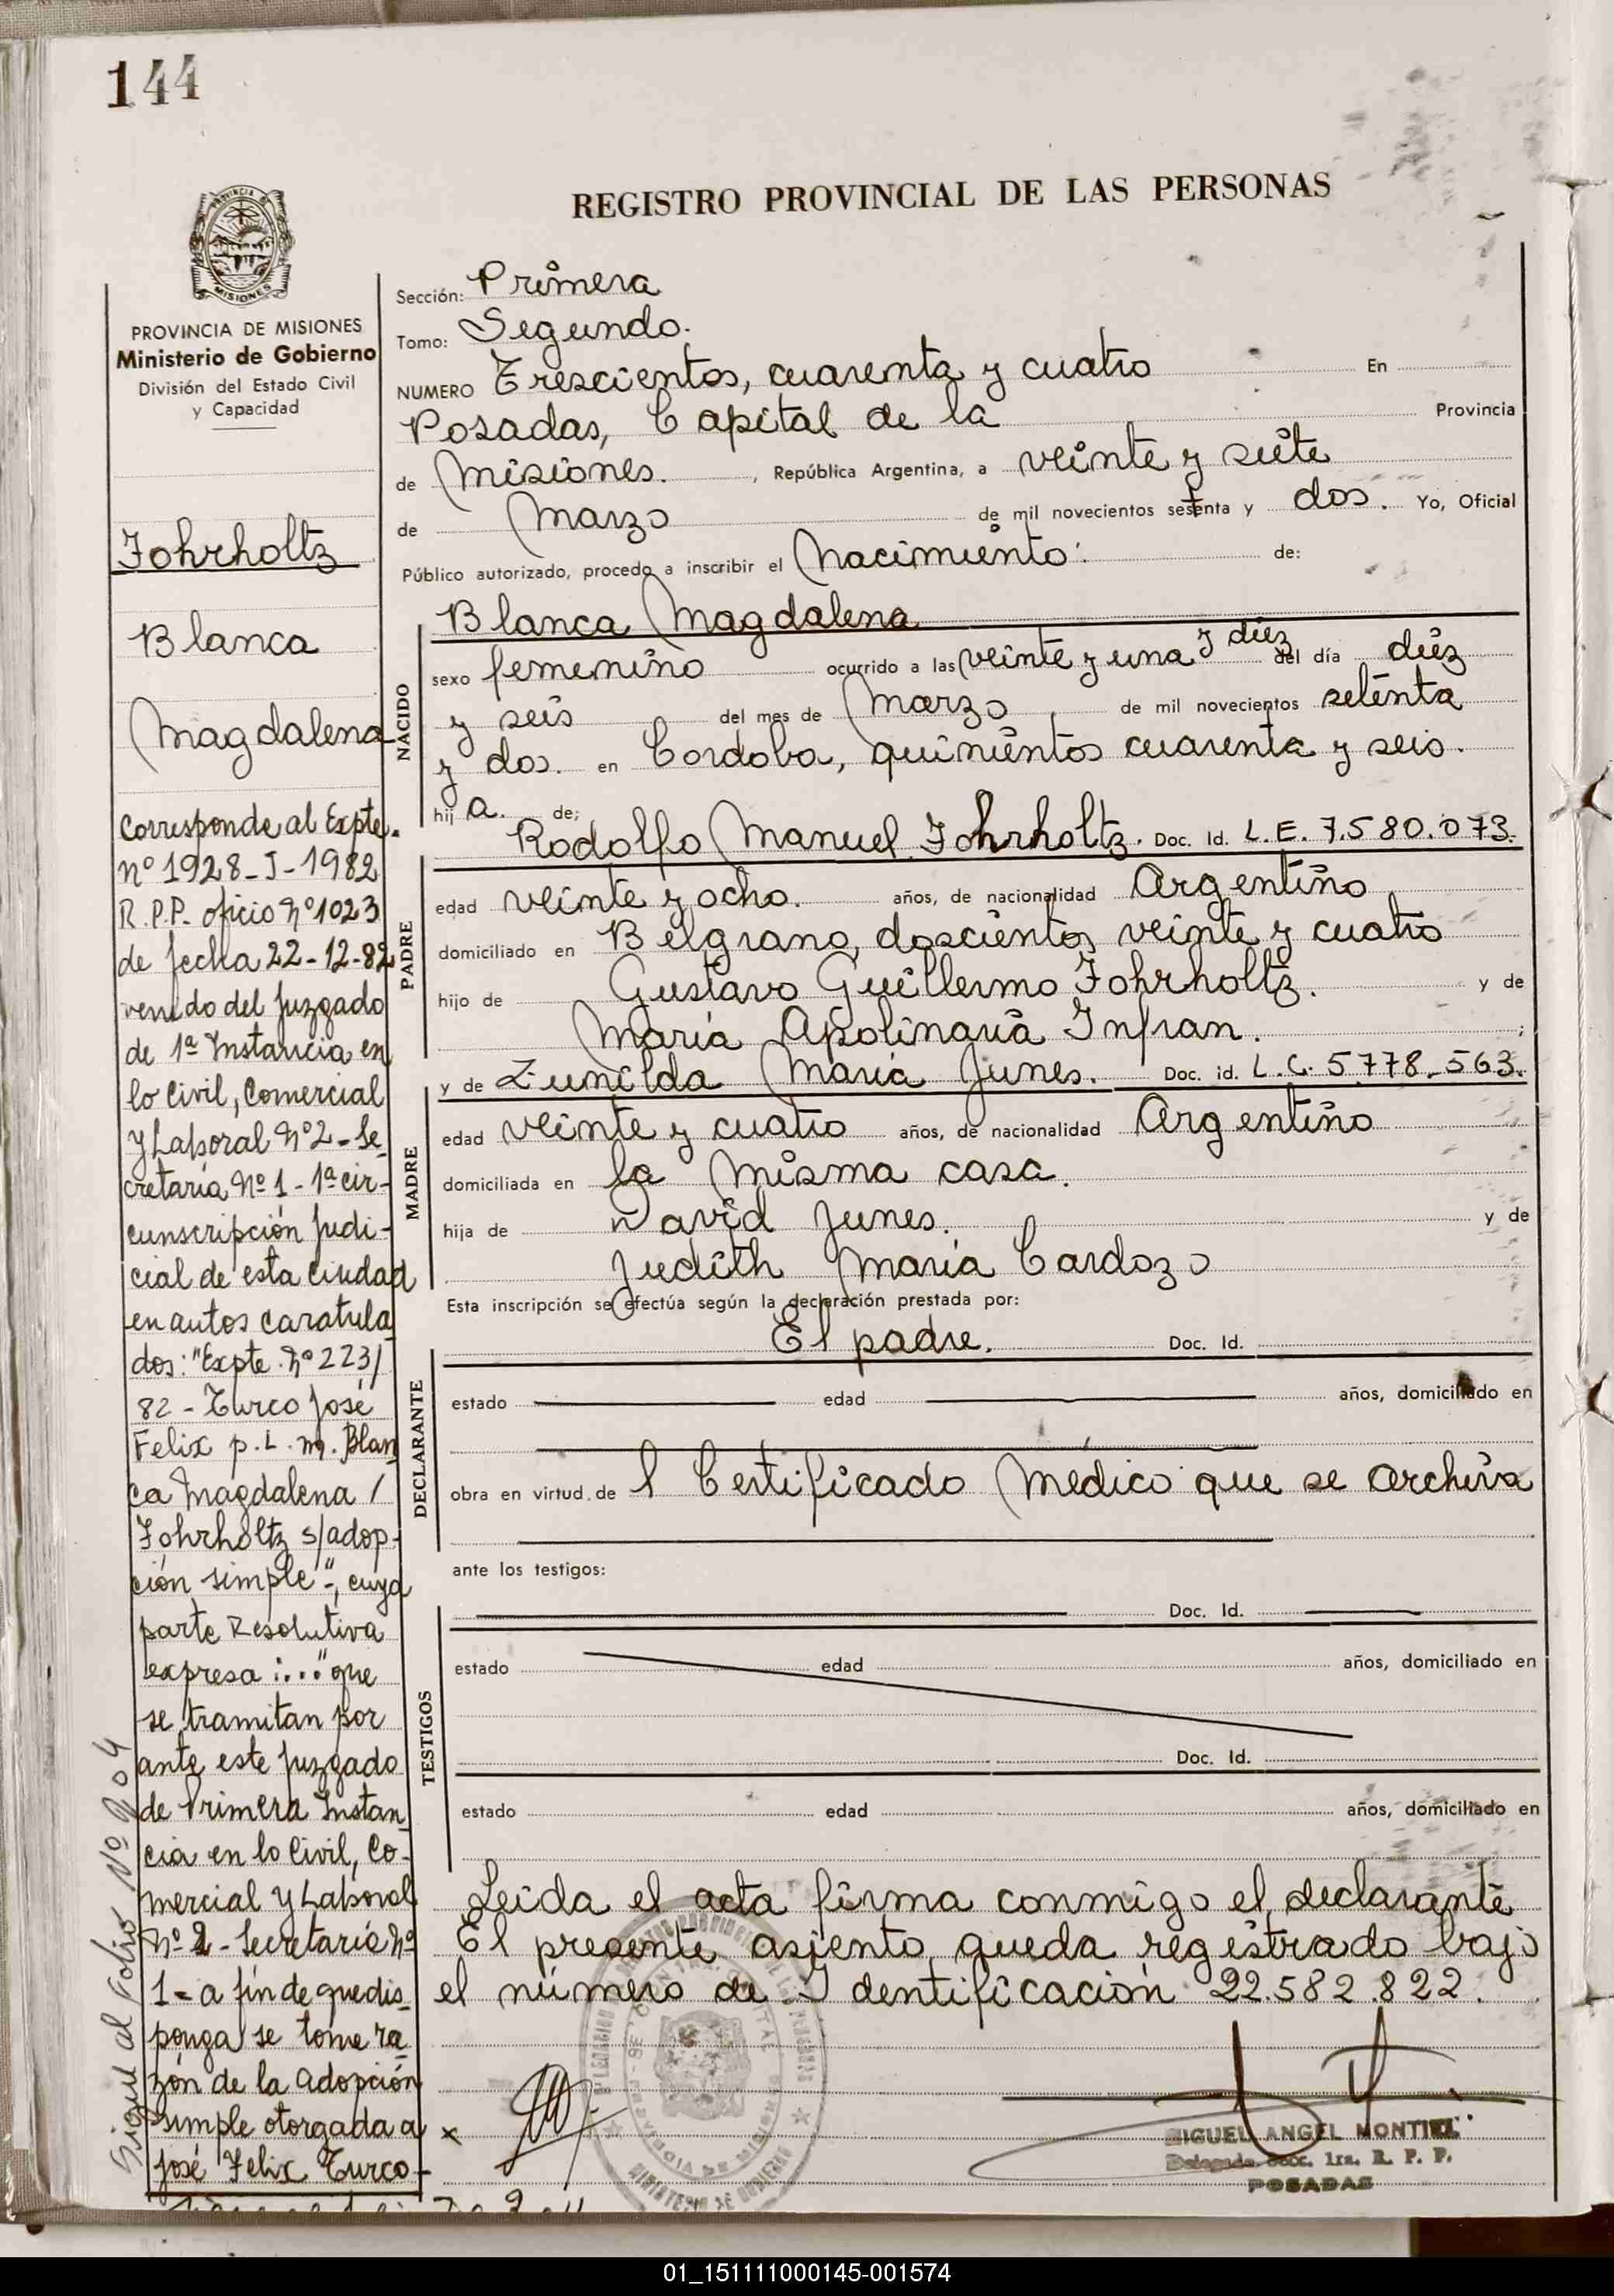 144
REGISTRO PROVINCIAL DE LAS PERSONAS
PROVINCIA DE MISIONES
Ministerio de Gobierno
División del Estado Civil
y Capacidad
Fohrholtz
Blanca
Magdalena
Corresponde al Expte.
nº 1928-J-1982
R.P.P. oficio Nº 1023
de fecha 22-12-82
venido del Juzgado
de 1ª Instancia en
lo Civil, Comercial
y Laboral Nº 2 - Se
cretaría Nº 1 - 1ª cir-
cunscripción Judi-
cial de esta ciudad
en autos caratula
dos: "Expte. Nº 223/
82 - Turco José
Felix p.L.m. Blan
ca Magdalena /
Fohrholtz s/adop-
ción simple"-, cuya
parte Resolutiva
expresa:..." que
se tramitan por
ante este Juzgado
de Primera Instan
cia en lo Civil, Co-
mercial y Laboral
Nº 2 - Secretaría Nº
1 - a fin de que dis_
ponga se tome ra
zón de la adopción
simple otorgada a
José Felix Turco-
Sigue al folio Nº 204
Sección: Primera
Tomo: Segundo.
NUMERO Trescientos, cuarenta y cuatro En
Posadas, Capital de la Provincia
de Misiones. , República Argentina, a veinte y siete
de Marzo de mil novecientos setenta y dos. Yo, Oficial
Público autorizado, procedo a inscribir el Nacimiento: de:
NACIDO
Blanca Magdalena
sexo femenino ocurrido a las veinte y una y diez del día diez
y seis del mes de Marzo de mil novecientos setenta
y dos. en Cordoba, quinientos cuarenta y seis.
hija. de;
PADRE
Rodolfo Manuel Fohrholtz. Doc. Id. L.E. 7.580.073.
edad veinte y ocho. años, de nacionalidad Argentino
domiciliado en Belgrano, doscientos veinte y cuatro
hijo de Gustavo Guillermo Fohrholtz. y de
María Apolinaria Infran. ;
MADRE
y de Zunilda María Junes. Doc. id. L.C. 5.778.563.
edad veinte y cuatro años, de nacionalidad Argentino
domiciliada en la misma casa.
hija de David Junes. y de
Judith María Cardozo
Esta inscripción se efectúa según la declaración prestada por:
El padre. Doc. Id.
DECLARANTE
estado edad años, domiciliado en
obra en virtud de l Certificado Médico que se archiva
ante los testigos:
Doc. Id.
TESTIGOS
estado edad años, domiciliado en
Doc. Id.
estado edad años, domiciliado en
Leida el acta firma conmigo el declarante
El presente asiento queda registrado bajo
el número de Identificación 22.582.822.
x
MIGUEL ANGEL MONTIEL
Delegado Secc. 1ra. R. P. P.
POSADAS
01_151111000145-001574